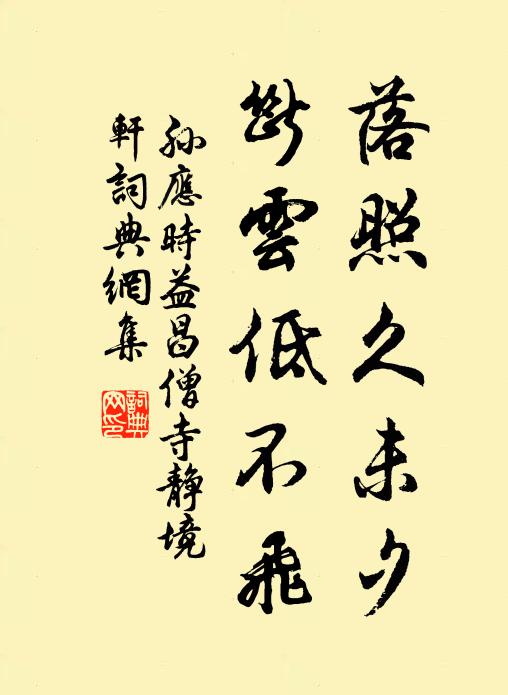 落照久未夕
斷雲低不飛
孫應時益昌僧寺靜境
軒詞典網集
詞典
网印